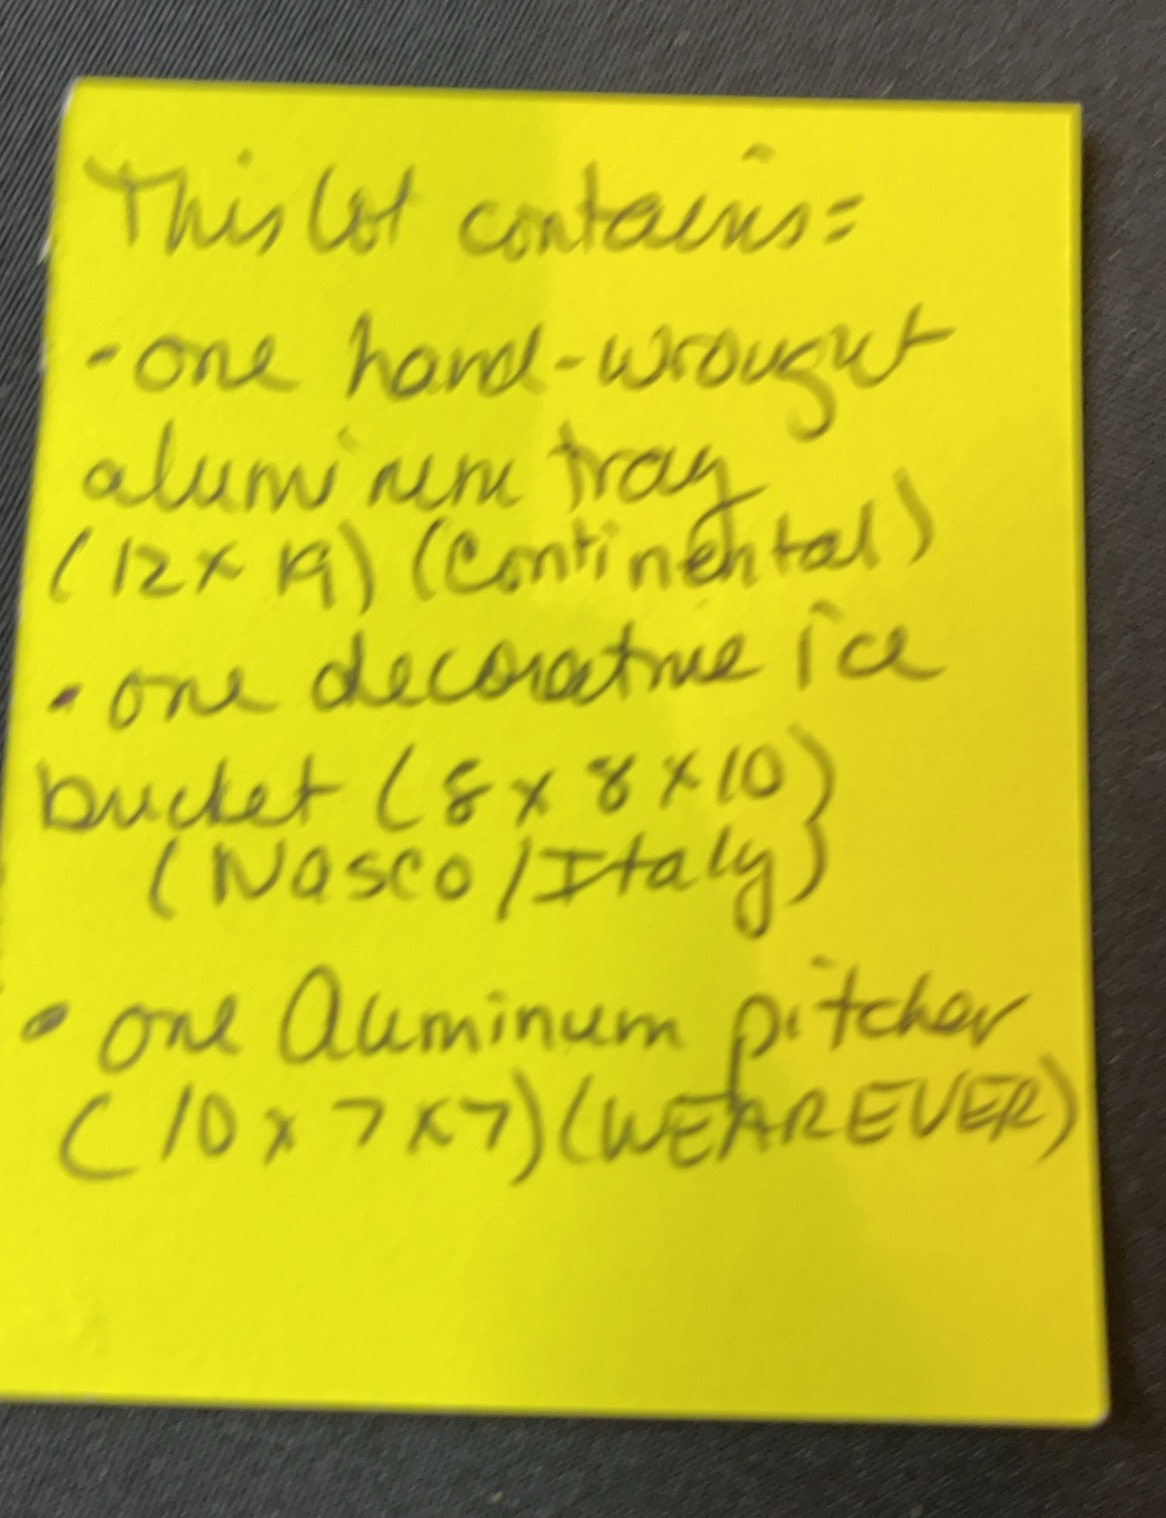 This lot contains:
- one hand-wrought
aluminum tray
(12 x 19) (Continental)
• one decorative ice
bucket (8 x 8 x 10)
(Nasco/Italy)
• one Aluminum pitcher
(10 x 7 x 7) (WEAREVER)